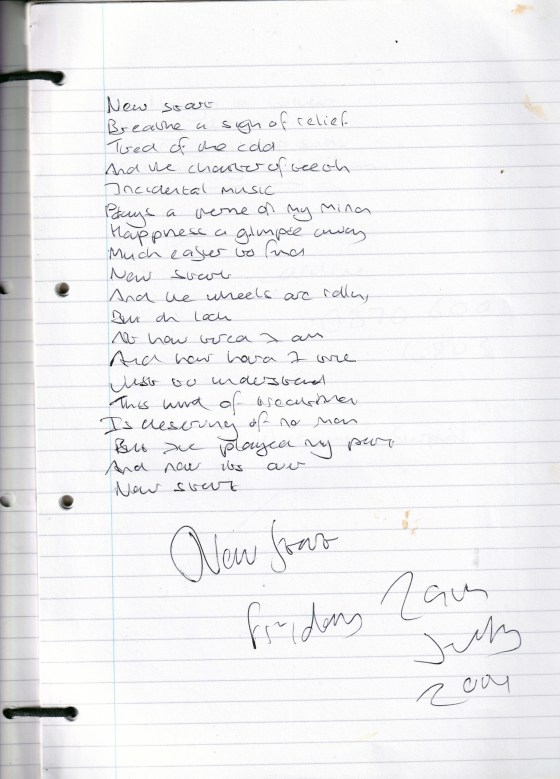 New start
Breathe a sigh of relief
Tired of the cold
And the chatter of teeth
Incidental music
Plays a on my mind
Happiness a glimpse away
Much easier to find
New start
And the wheels are
But oh look
At how tired I am
And how hard I
Just to understand
This kind of treatment
Is deserving of no man
But I've played my part
And now its over
New start
New Start
Friday
July